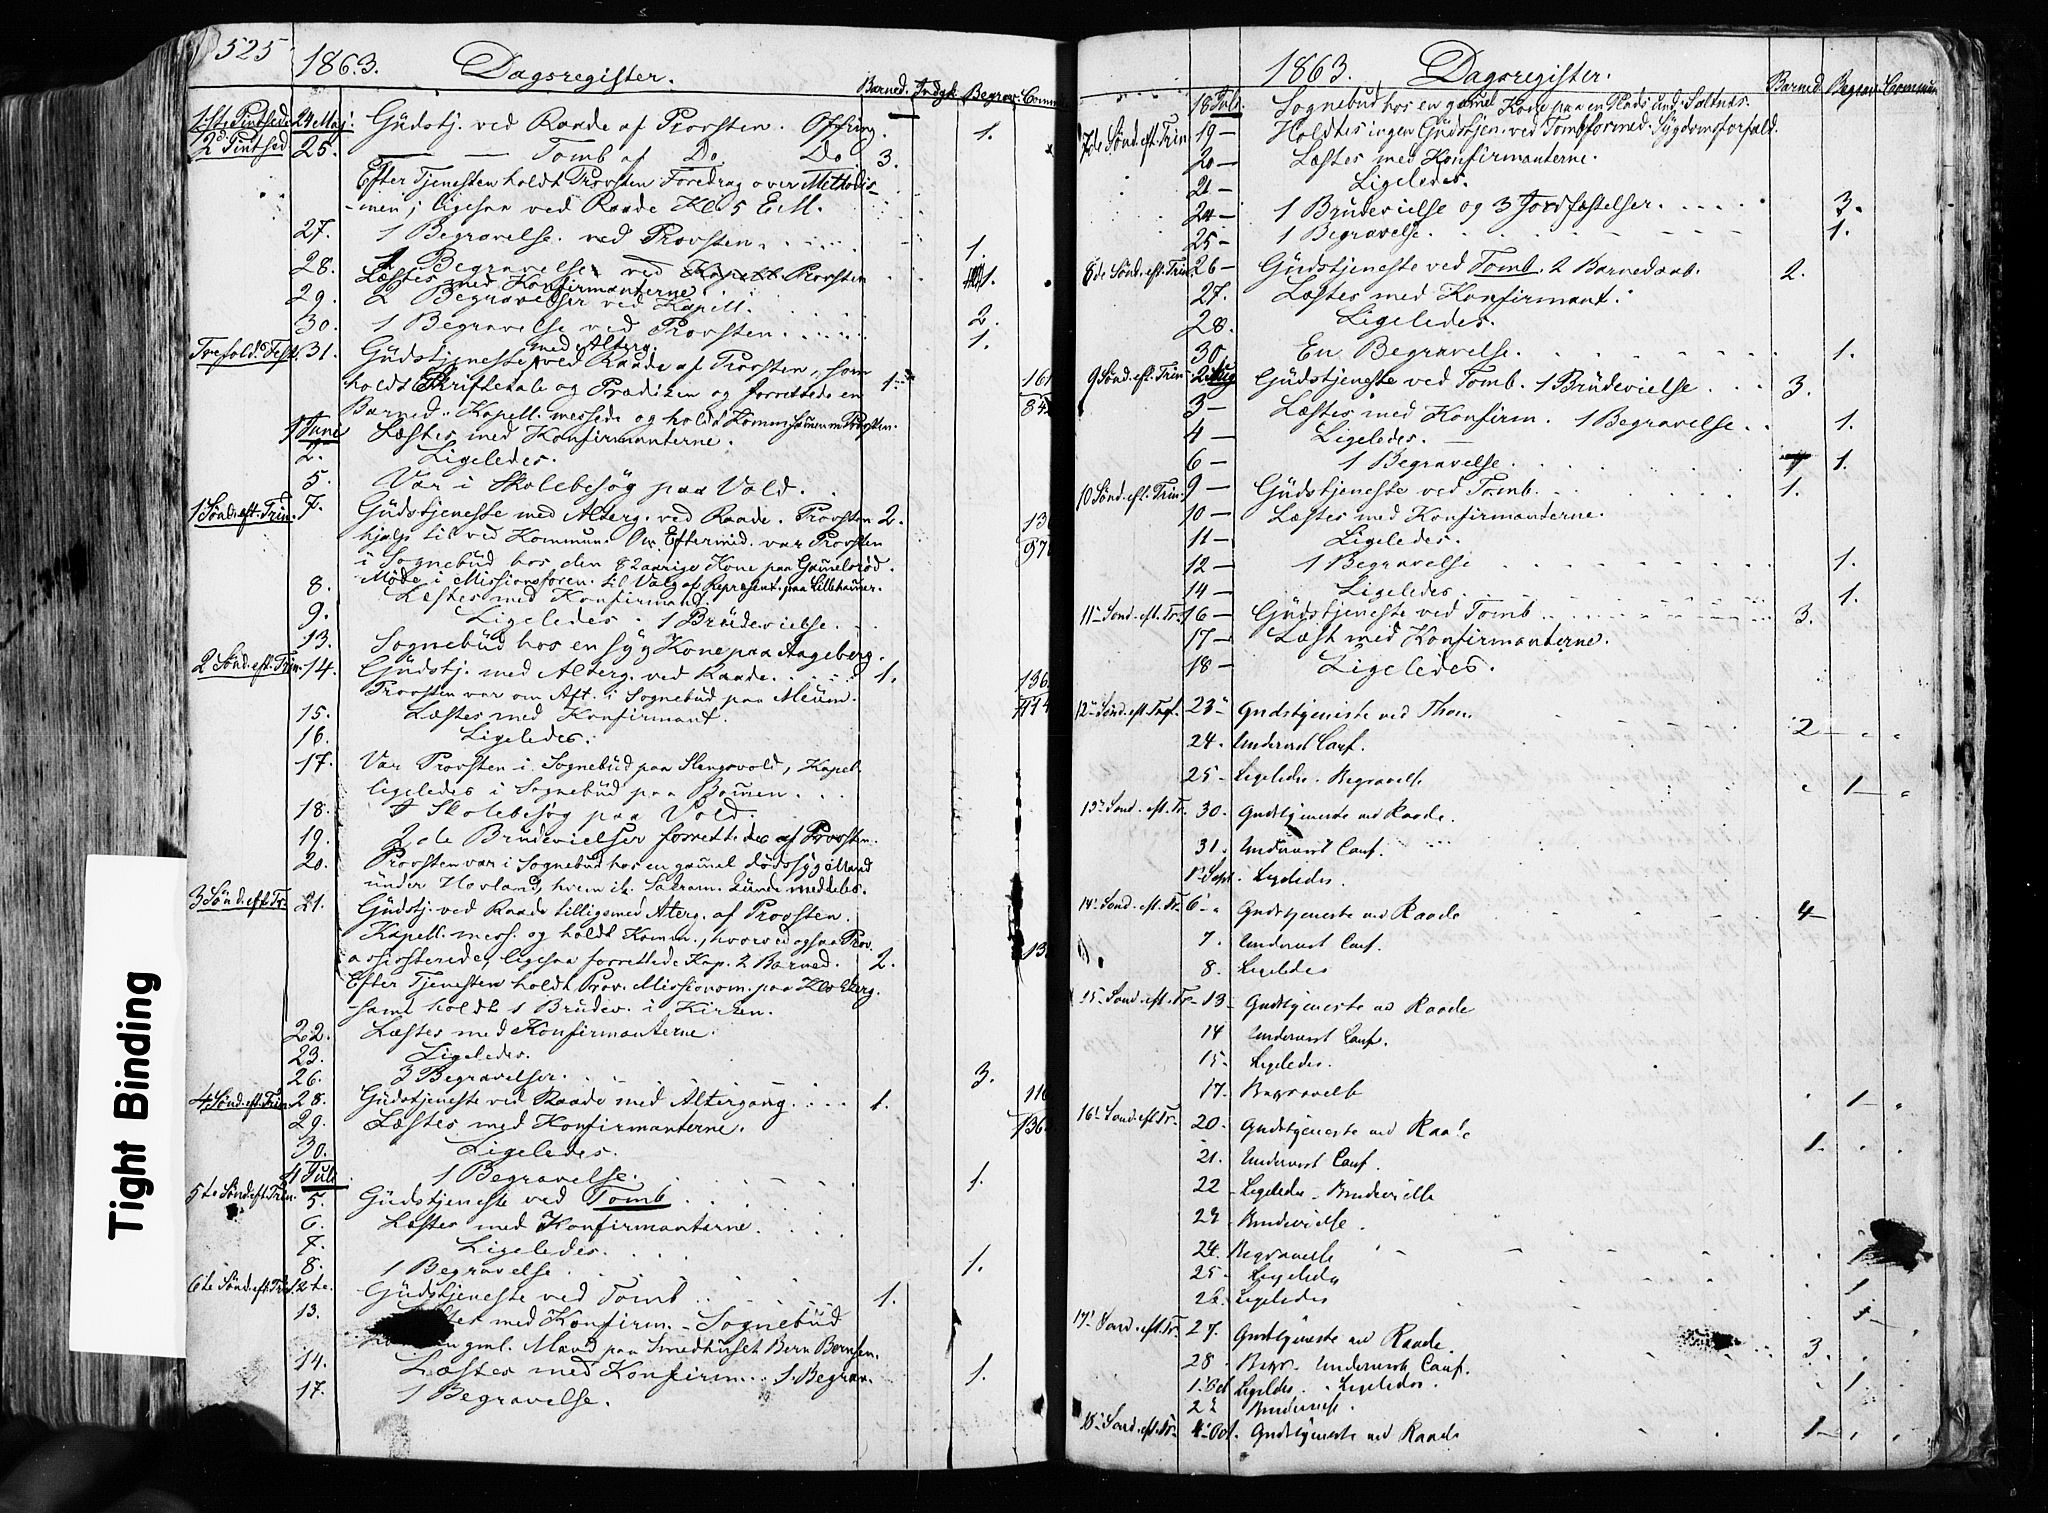 525 1863. Dagsregister.
Barned. Indgk. Begrav. Comm
1ste Pintsed. 24 Maj. Gudstj. ved Raade af Provsten. Offring. 1.
2d Pintsed 25. — — Tomb af Do. Do. 3.
Efter Tjenesten holdt Provsten Foredrag over Methodis-
-men; ligesaa ved Raade Kl. 5 E.M.
27. 1 Begravelse ved Provsten. 1.
28. 1 Begravelse ved Kapell. Provsten 1.
Læstes med Konfirmanterne.
29. 2 Begravelser ved Kapell. 2.
30. 1 Begravelse ved Provsten. 1.
med Alterg.
Trefold. Fest. 31. Gudstjeneste ved Raade af Provsten, som
holdt Skriftetale og Prædiken og forrettede en 1. 161
Barned. Kapell. messede og holdt Kommun sammen m Provsten. 84
1 Juni Læstes med Konfirmanterne.
2. Ligeledes.
5. Var i Skolebesøg paa Vold.
1 Sønd. eft. Trin. 7. Gudstjeneste med Alterg. ved Raade. Provsten 2.
hjalp til ved Kommun. Om Eftermid. var Provsten 97
i Sognebud hos den 82aarige Kone paa Gamelsrød.
8. Møde i Missionsforen. til Valg af Represent. paa Lillehamer.
Læstes med Konfirmand.
9. Ligeledes. 1 Brudevielse.
13. Sognebud hos en syg Kone paa Aageberg.
2 Sønd. eft. Trin. 14. Gudstj. med Alterg. ved Raade. 1. 136
Provsten var om Aft. i Sognebud paa Meum. 114
15. Læstes med Konfirmant.
16. Ligeledes.
17. Var Provsten i Sognebud paa Slangsvold, Kapel.
ligeledes i Sognebud paa Bomen.
18. I Skolebesøg paa Vold.
19. 2de Brudevielser forrettedes af Provsten.
20. Provsten var i Sognebud hos en gamel dødssyg Mand
under Hovland, hvem ik. Sakram. kunde meddeles.
3 Sønd. eft. Tr. 21. Gudstj. ved Raade tilligemed Alterg. af Provsten.
Kapell. mess. og holdt Komm., hvorved ogsaa Prov. 13
assisterede, ligesaa forrettede Kap. 2 Barned. 2.
Efter Tjenesten holdt Prov. Missionsm. paa Kloskerg.
samt holdt 1 Brudev. i Kirken.
22. Læstes med Konfirmanterne.
23. Ligeledes.
26. 3 Begravelser. 3.
4 Sønd. eft. Trin. 28. Gudstjeneste ved Raade med Altergang. 1. 116
29. Læstes med Konfirmanterne. 136
30. Ligeledes.
1 Juli 1 Begravelse. 1.
5te Sønd eft. Trin. 5. Gudstjeneste ved Tomb.
6. Læstes med Konfirmanterne.
7. Ligeledes.
8. 1 Begravelse. 1.
6te Sønd. eft. Tri. 12te. Gudstjeneste ved Tomb. 1.
13. med Konfirm. – Sognebud
gml. Mand paa Smedhuset Bern Bernsen.
14. Læstes med Konfirm. 1 Begrav. 1.
17. 1 Begravelse.
1863. Dagsregister. Barned. Begrav. Commun
18 Juli Sognebud hos en gamel Kone paa en Plads und. Saltnes.
7de Sønd. eft. Trin. 19 – Holdtes ingen Gudstjen. ved Tomb formed. Sygdomsforfald.
20 – Læstes med Konfirmanterne.
21 – Ligeledes.
24 – 1 Brudevielse og 3 Jordfæstelser. 3.
25 – 1 Begravelse. 1.
8de Sønd. eft. Trin. 26 – Gudstjeneste ved Tomb. 2 Barnedaab. 2.
27. Læstes med Konfirmant.
28. Ligeledes.
30. En Begravelse. 1.
9 Sønd. eft. Trin 2 Aug Gudstjeneste ved Tomb. 1 Brudevielse 3.
3 – Læstes med Konfirm. 1 Begravelse. 1.
4 – Ligeledes.
6 – 1 Begravelse. 1.
10 Sønd. eft. Trin. 9 – Gudstjeneste ved Tomb. 1.
10 – Læstes med Konfirmanterne.
11 – Ligeledes.
12 – 1 Begravelse 1.
14 – Ligeledes. 1.
11te Sønd. eft. Tr. 16 – Gudstjeneste ved Tomb 3.
17 – Læst med Konfirmanterne.
18 – Ligeledes.
12te Sønd. eft. Tref. 23 Gudstjeneste ved Thom. 2
24. Undervist Conf.
25 – Ligeledes. Begravelse 1
13de Sønd. eft. Tr. 30. Gudstjeneste ved Raade.
31. Undervist Conf.
1 Sept. Ligeledes.
14. Sønd. eft. Tr. 6 Gudstjeneste ved Raade 4
7. Undervist Conf.
8. Ligeledes
15. Sønd. eft. Tr. 13 – Gudstjeneste ved Raade
14 Undervist Conf.
15. Ligeledes.
17. Begravelse 1
16. Sønd. eft. Tr. 20. Gudstjeneste ved Raade 1.
21. Undervist Conf.
22 – Ligeledes – Brudevielse
23 – Brudevielse.
24. Begravelse 1
25. Ligeledes 1
26. Ligeledes 1
17. Sønd. eft. Tr. 27. Gudstjeneste ved Raade. 3.
28 – Begr. Undervist Conf. 1
1. Oct. Ligeledes. Ligeledes.
2 Brudeviels.
18. Sønd. eft. Tr. 4. Oct. Gudstjeneste ved Raade 1
Tight Binding